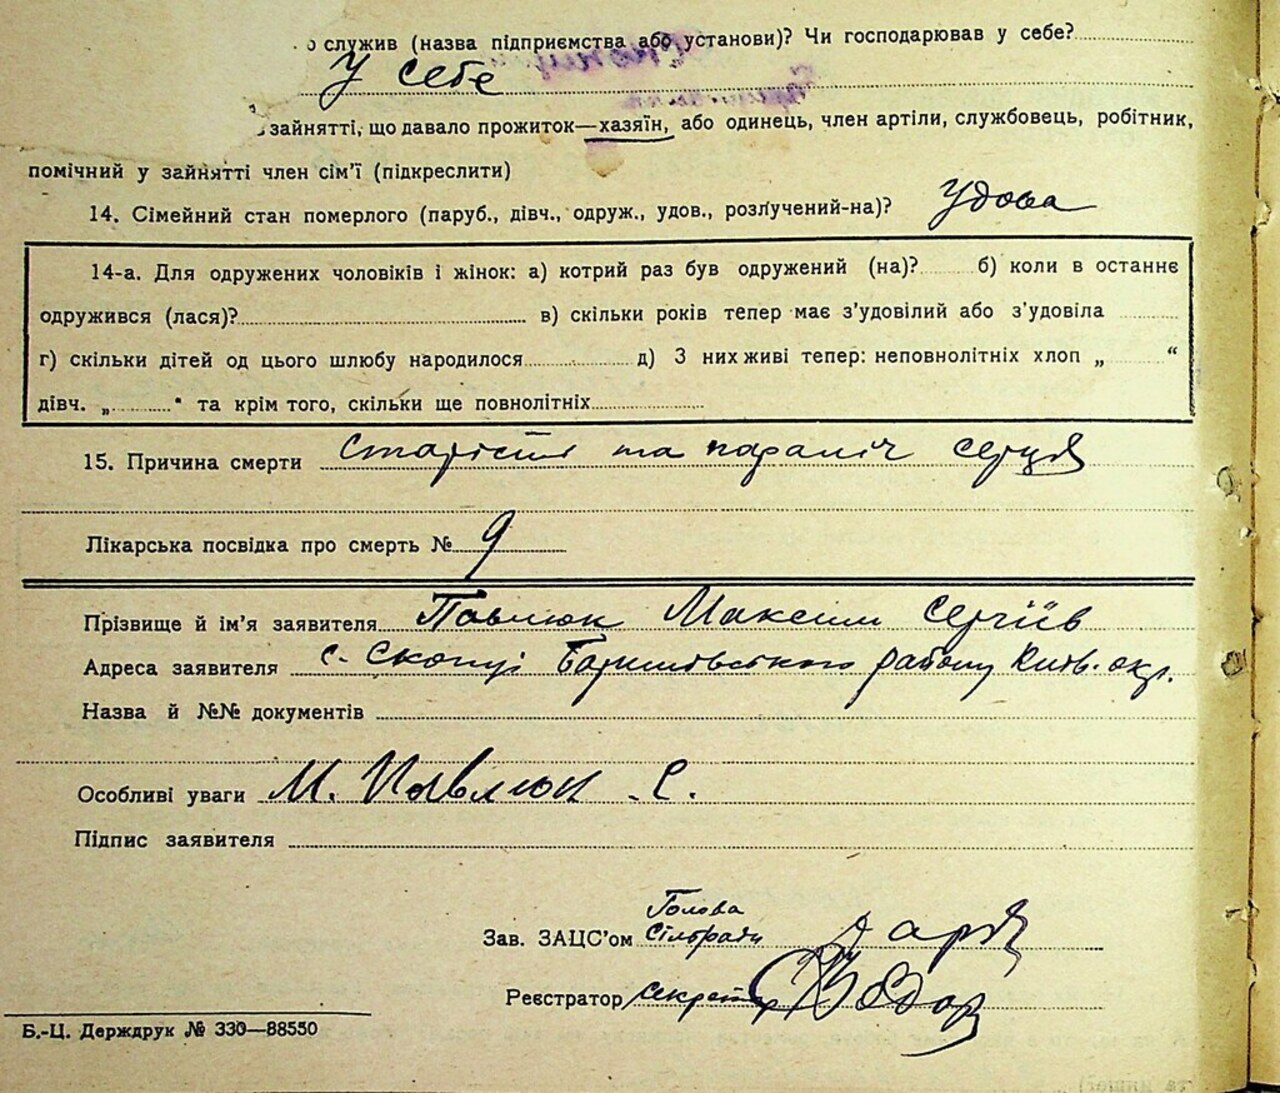 служив (назва підприємства або установи)? Чи господарював у себе?
У себе
зайнятті, що давало прожиток—хазяїн, або одинець, член артіли, службовець, робітник,
помічний у зайнятті член сім'ї (підкреслити)
14. Сімейний стан померлого (паруб., дівч., одруж., удов., розлучений-на)? Удова
14-а. Для одружених чоловіків і жінок: а) котрий раз був одружений (на)? б) коли в останнє
одружився (лася)? в) скільки років тепер має з'удовілий або з'удовіла
г) скільки дітей од цього шлюбу народилося д) З них живі тепер: неповнолітніх хлоп „ “
дівч. „ “ та крім того, скільки ще повнолітніх
15. Причина смерти Старість та параліч серця
Лікарська посвідка про смерть № 9
Прізвище й ім'я заявителя Павлюк Максим Сергіїв
Адреса заявителя с. Скопці Баришівського району Київ. окр.
Назва й №№ документів
Особливі уваги М. Павлюк С.
Підпис заявителя
Голова
Зав. ЗАЦС'ом Сільради
Реєстратор секретар
Б.-Ц. Держдрук № 330—88550